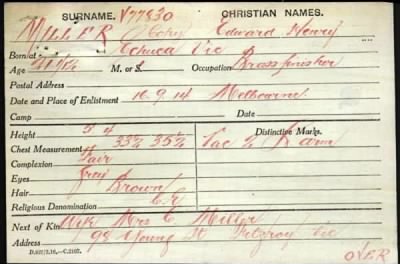 SURNAME. V77830 CHRISTIAN NAMES.
MILLER Edward Henry
Born at Echuca Vic
Age 41 M. or S. Occupation Brassfinisher
Postal Address
Date and Place of Enlistment 10.9.14 Melbourne
Camp Date
Height 5 4 Distinctive Marks.
Chest Measurement 33½ 35½ Vac
Complexion Fair
Eyes Grey
Hair Brown
Religious Denomination C.E
Next of Kin Wife Mrs E Miller
Address 98 Young St Fitzroy Vic